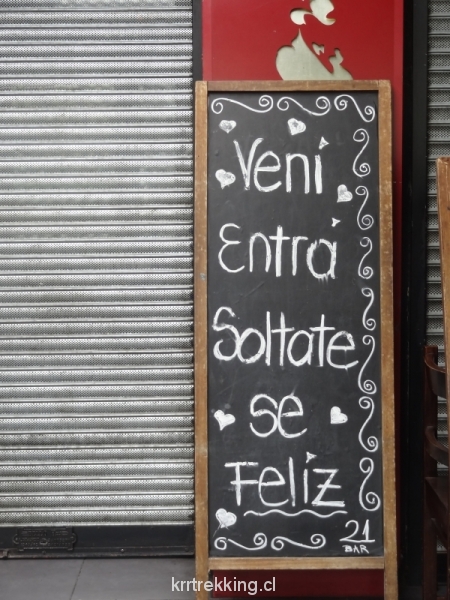 Vení
Entrá
Soltate
se
Felíz
21
BAR
krrtrekking.cl